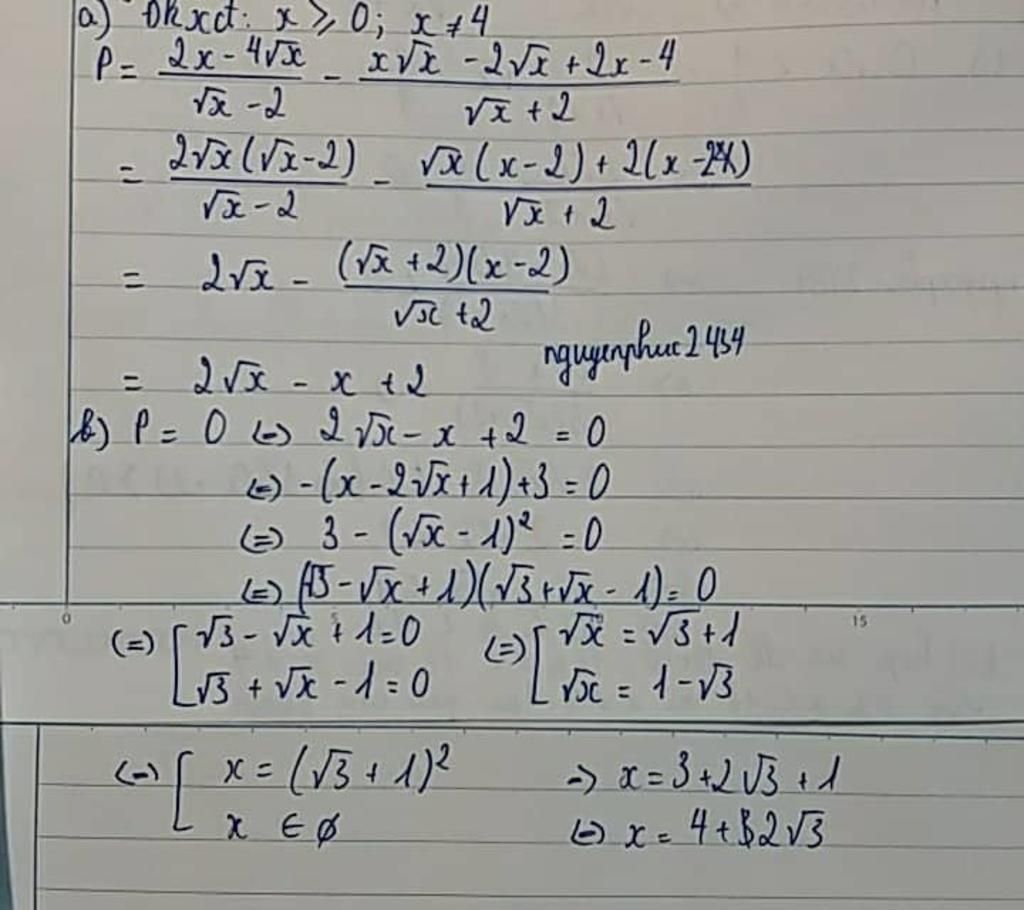 a) Đkxđ: x ≥ 0; x ≠ 4
P = (2x - 4√x)/(√x - 2) - (x√x - 2√x + 2x - 4)/(√x + 2)
= (2√x(√x-2))/(√x - 2) - (√x(x-2) + 2(x-2))/(√x + 2)
= 2√x - ((√x+2)(x-2))/(√x+2)
nguyenphuc2434
= 2√x - x + 2
b) P = 0 (=) 2√x - x + 2 = 0
(=) -(x - 2√x + 1) + 3 = 0
(=) 3 - (√x - 1)² = 0
(=) (√3 - √x + 1)(√3 + √x - 1) = 0
0 15
(=) [ √3 - √x + 1 = 0 (=) [ √x = √3 + 1
√3 + √x - 1 = 0 √x = 1 - √3
(=) [ x = (√3 + 1)² => x = 3 + 2√3 + 1
x ∈ ∅ (=) x = 4 + 2√3